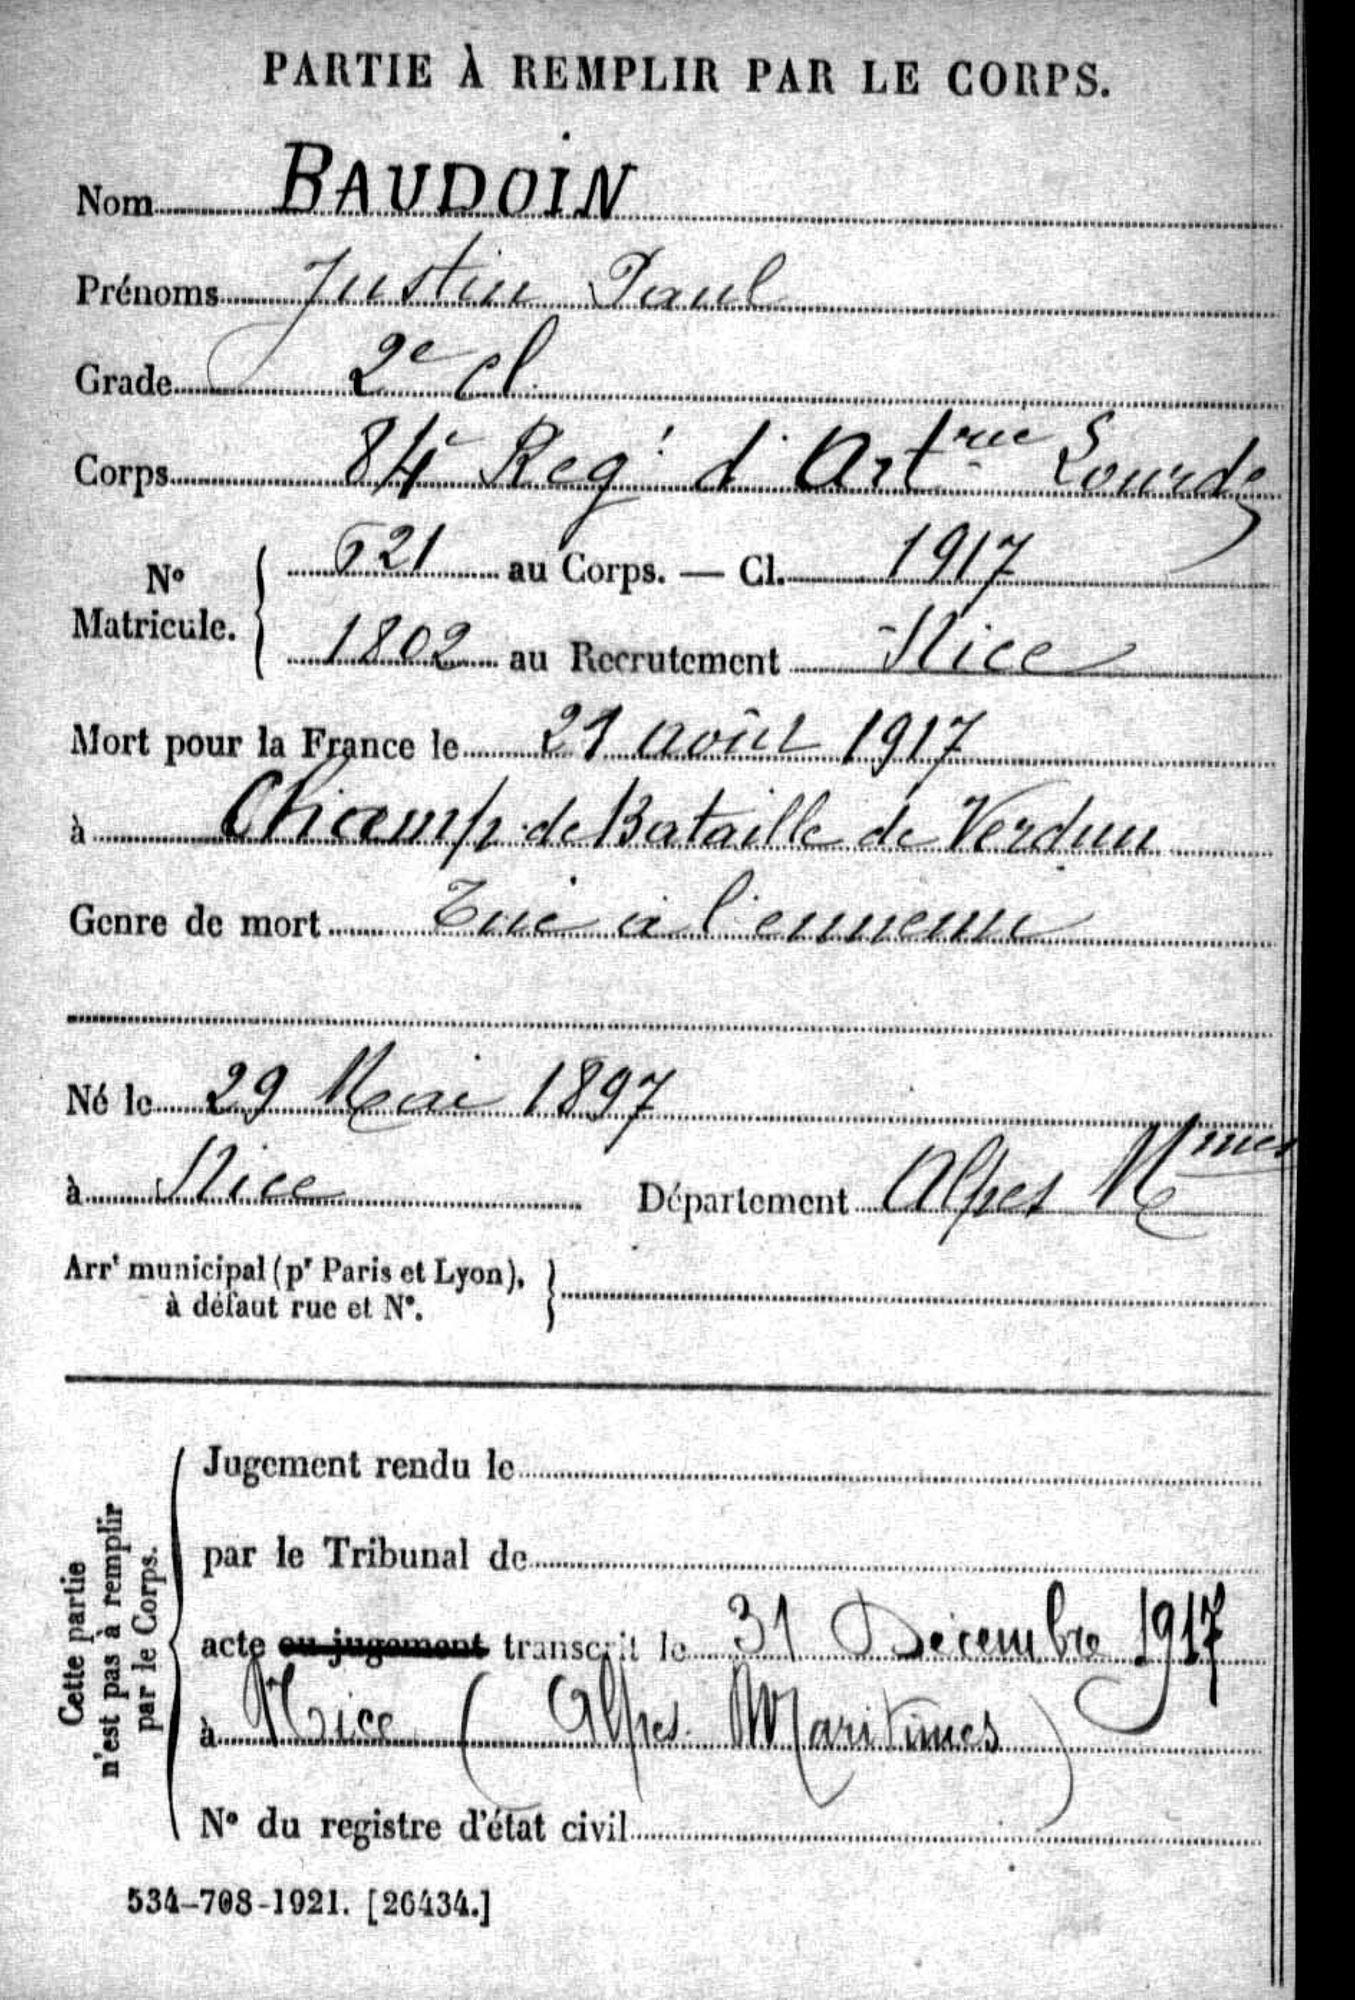 PARTIE À REMPLIR PAR LE CORPS.
Nom BAUDOIN
Prénoms Justin Paul
Grade 2e cl.
Corps 84e Regt d'Artrie Lourde
No Matricule. { 521 au Corps. — Cl. 1917
1802 au Recrutement Nice
Mort pour la France le 21 août 1917
à Champ de Bataille de Verdun
Genre de mort Tué à l'ennemi
Né le 29 Mai 1897
à Nice Département Alpes Mmes
Arrt municipal (pr Paris et Lyon), à défaut rue et No. }
Cette partie n'est pas à remplir par le Corps.
Jugement rendu le
par le Tribunal de
acte ou jugement transcrit le 31 Décembre 1917
à Nice (Alpes Maritimes)
No du registre d'état civil
534-708-1921. [26434.]